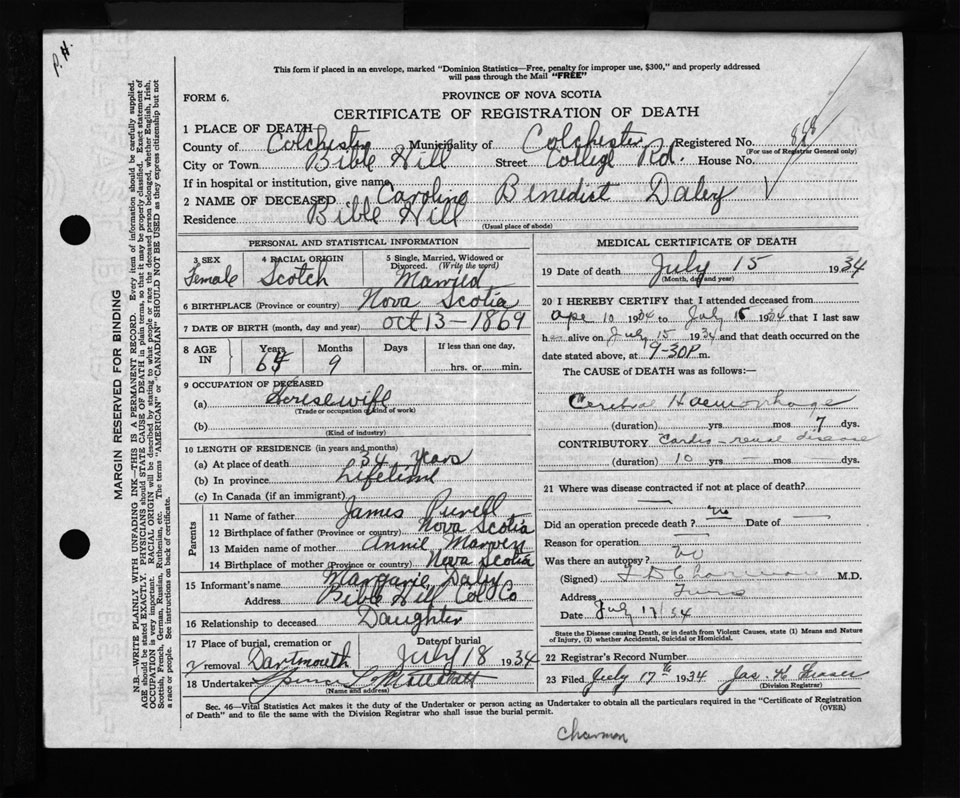 P. H.
This form if placed in an envelope, marked "Dominion Statistics—Free, penalty for improper use, $300," and properly addressed
will pass through the Mail "FREE"
FORM 6.
PROVINCE OF NOVA SCOTIA
CERTIFICATE OF REGISTRATION OF DEATH
1 PLACE OF DEATH
County of Colchester Municipality of Colchester Registered No. 868
(For use of Registrar General only)
City or Town Bible Hill Street College Rd. House No.
If in hospital or institution, give name
2 NAME OF DECEASED Caroline Benedict Daley
Residence Bible Hill
(Usual place of abode)
PERSONAL AND STATISTICAL INFORMATION
3 SEX Female
4 RACIAL ORIGIN Scotch
5 Single, Married, Widowed or Divorced. (Write the word) Married
6 BIRTHPLACE (Province or country) Nova Scotia
7 DATE OF BIRTH (month, day and year) Oct 13—1869
8 AGE IN Years 64 Months 9 Days If less than one day, hrs. or min.
9 OCCUPATION OF DECEASED
(a) Housewife
(Trade or occupation or kind of work)
(b)
(Kind of industry)
10 LENGTH OF RESIDENCE (in years and months)
(a) At place of death 34 years
(b) In province Lifetime
(c) In Canada (if an immigrant)
Parents
11 Name of father James Purcell
12 Birthplace of father (Province or country) Nova Scotia
13 Maiden name of mother Annie
14 Birthplace of mother (Province or country) Nova Scotia
15 Informant's name Margarie Daley
Address Bible Hill Col Co
16 Relationship to deceased Daughter
17 Place of burial, cremation or removal Dartmouth Date of burial July 18 1934
18 Undertaker
(Name and address)
MEDICAL CERTIFICATE OF DEATH
19 Date of death July 15 1934
(Month, day and year)
20 I HEREBY CERTIFY that I attended deceased from
Apr 10 1934 to July 15 1934 that I last saw
her alive on July 15 1934 and that death occurred on the
date stated above, at 9-30 P. m.
The CAUSE of DEATH was as follows:—
Cerebral Haemorrhage
(duration) yrs mos 7 dys.
CONTRIBUTORY Cardio-renal disease
(duration) 10 yrs — mos dys.
21 Where was disease contracted if not at place of death?
—
Did an operation precede death? no Date of —
Reason for operation —
Was there an autopsy? no
(Signed) M.D.
Address Truro
Date July 17/34
State the Disease causing Death, or in death from Violent Causes, state (1) Means and Nature
of Injury, (2) whether Accidental, Suicidal or Homicidal.
22 Registrar's Record Number
23 Filed July 17th 1934 Jas. H.
(Division Registrar)
Sec. 46—Vital Statistics Act makes it the duty of the Undertaker or person acting as Undertaker to obtain all the particulars required in the "Certificate of Registration
of Death" and to file the same with the Division Registrar who shall issue the burial permit.
(OVER)
MARGIN RESERVED FOR BINDING
N.B.—WRITE PLAINLY WITH UNFADING INK—THIS IS A PERMANENT RECORD. Every item of information should be carefully supplied.
AGE should be stated EXACTLY. PHYSICIANS should STATE CAUSE OF DEATH in plain terms, so that it may be properly classified. Exact statement of
OCCUPATION is very important. RACIAL ORIGIN will be described by stating to what people or race the deceased person belonged, whether English, Irish,
Scottish, French, German, Russian, Ruthenian, etc. The terms "AMERICAN" or "CANADIAN" SHOULD NOT BE USED as they express citizenship but not
a race or people. See instructions on back of certificate.